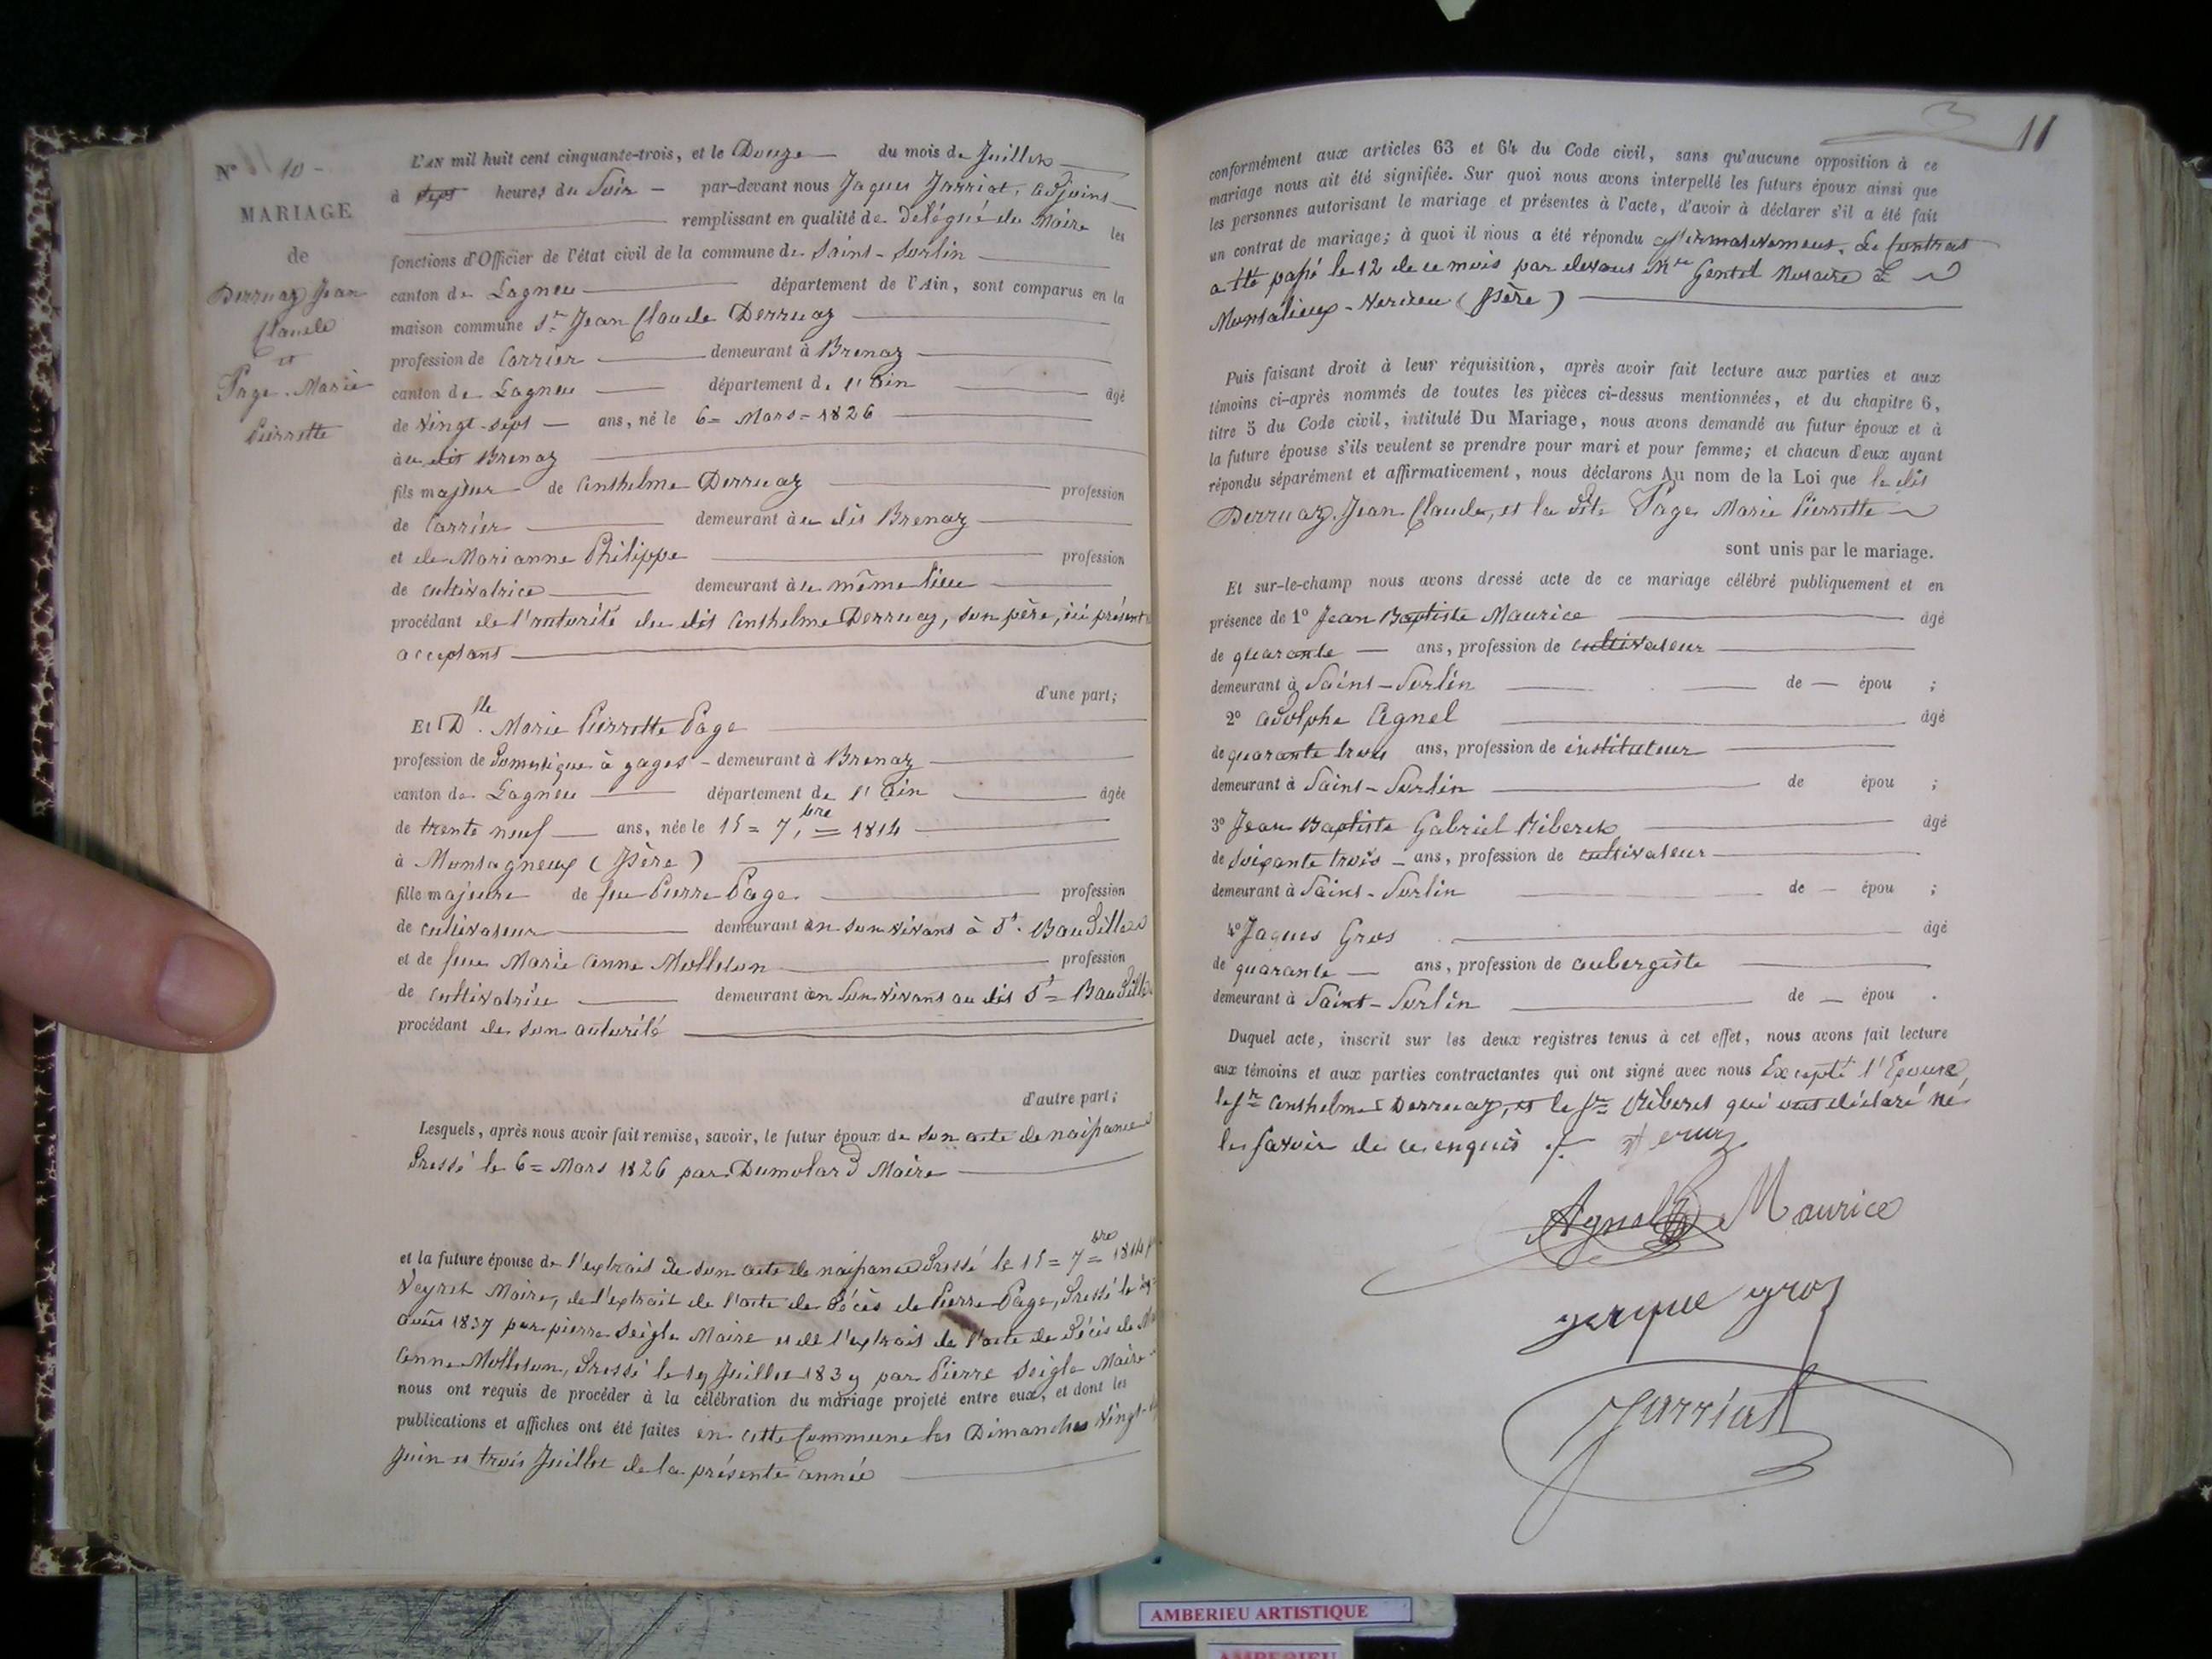 N° 10 -
MARIAGE
de
Derruaz Jean
Claude
et
Page Marie
Pierrette
L'AN mil huit cent cinquante-trois, et le Douze du mois de Juillet
à sept heures du Soir - par-devant nous Jaques Jarriat, adjoint
remplissant en qualité de délégué du Maire les
fonctions d'Officier de l'état civil de la commune de Saint-Sorlin
canton de Lagneu département de l'Ain, sont comparus en la
maison commune Sr Jean Claude Derruaz
profession de Carrier demeurant à Brenaz
canton de Lagneu département de l'Ain âgé
de Vingt-sept ans, né le 6= Mars = 1826
à u dit Brenaz
fils majeur de Anthelme Derruaz profession
de Carrier demeurant à u dit Brenaz
et de Marianne Philippe profession
de cultivatrice demeurant à u même lieu
procédant de l'autorité du dit Anthelme Derruaz, son père, ici présent
acceptant
d'une part;
Et Dlle Marie Pierrette Page
profession de Domestique à gages - demeurant à Brenaz
canton de Lagneu département de l'Ain âgée
de trente neuf ans, née le 15 = 7bre = 1814
à Montagneux (Isère)
fille majeure de feu Pierre Page profession
de cultivateur demeurant en son vivant à St. Baudille
et de feue Marie Anne Molleton profession
de Cultivatrice demeurant en son vivant au dit St= Baudille
procédant de son autorité
d'autre part;
Lesquels, après nous avoir fait remise, savoir, le futur époux de son acte de naissance
dressé le 6= Mars 1826 par Dumolard Maire
et la future épouse de l'extrait de son acte de naissance dressé le 15= 7bre= 1814
Veyret Maire, de l'extrait de l'acte de décès de Pierre Page, dressé le
août 1837 par pierre Seigle Maire et de l'extrait de l'acte de décès de
Anne Molleton, dressé le 19 Juillet 1839 par Pierre Seigle Maire
nous ont requis de procéder à la célébration du mariage projeté entre eux, et dont les
publications et affiches ont été faites en cette Commune les Dimanches Vingt-
Juin et trois Juillet de la présente année
11
conformément aux articles 63 et 64 du Code civil, sans qu'aucune opposition à ce
mariage nous ait été signifiée. Sur quoi nous avons interpellé les futurs époux ainsi que
les personnes autorisant le mariage et présentes à l'acte, d'avoir à déclarer s'il a été fait
un contrat de mariage; à quoi il nous a été répondu affirmativement. Le Contrat
a été passé le 12 de ce mois par devant Mtre Gentil Notaire à
Montalieux-Vercieu (Isère)
Puis faisant droit à leur réquisition, après avoir fait lecture aux parties et aux
témoins ci-après nommés de toutes les pièces ci-dessus mentionnées, et du chapitre 6,
titre 5 du Code civil, intitulé Du Mariage, nous avons demandé au futur époux et à
la future épouse s'ils veulent se prendre pour mari et pour femme; et chacun d'eux ayant
répondu séparément et affirmativement, nous déclarons Au nom de la Loi que le dit
Derruaz Jean Claude, et la dite Page Marie Pierrette
sont unis par le mariage.
Et sur-le-champ nous avons dressé acte de ce mariage célébré publiquement et en
présence de 1° Jean Baptiste Maurice âgé
de quarante ans, profession de cultivateur
demeurant à Saint-Sorlin de — épou ;
2° Adolphe Agnel âgé
de quarante trois ans, profession de instituteur
demeurant à Saint-Sorlin de épou ;
3° Jean Baptiste Gabriel Riberet âgé
de soixante trois - ans, profession de cultivateur
demeurant à Saint-Sorlin de — épou ;
4° Jaques Gros âgé
de quarante ans, profession de aubergiste
demeurant à Saint-Sorlin de — épou .
Duquel acte, inscrit sur les deux registres tenus à cet effet, nous avons fait lecture
aux témoins et aux parties contractantes qui ont signé avec nous Excepté l'Epouse,
le Sr Anthelme Derruaz, et le Sr= Riberet qui ont déclaré ne
le savoir de ce enquis ./.
Agnel Maurice
jaque gros
Jarriat
AMBERIEU ARTISTIQUE
AMBERIEU